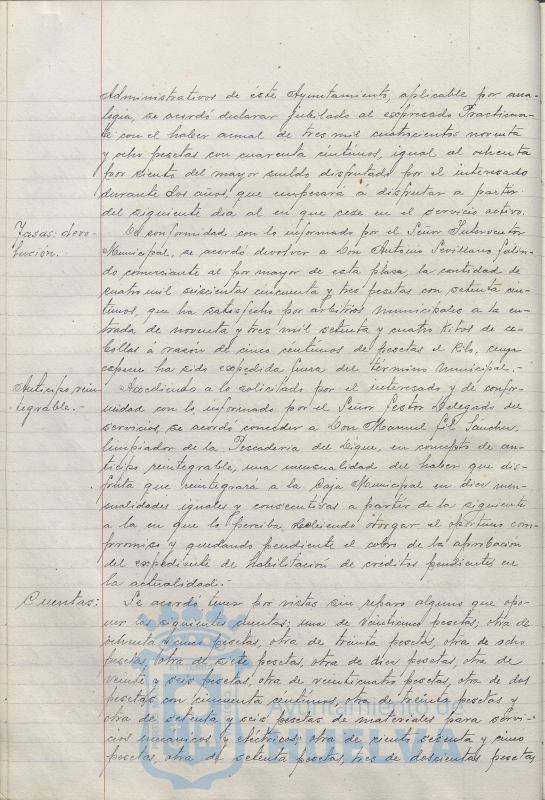 Administrativos de este Ayuntamiento, aplicable por ana-
logía, se acordó declarar jubilado al expresado Practican-
te con el haber anual de tres mil cuatrocientos noventa
y ocho pesetas con cuarenta céntimos, igual al ochenta
por ciento del mayor sueldo disfrutado por el interesado
durante dos años, que empezará á disfrutar a partir
del siguiente día al en que cese en el servicio activo.
Tasas: devo-
lución.
De conformidad con lo informado por el Señor Interventor
Municipal, se acordó devolver a Don Antonio Sevillano Galin-
do comerciante al por mayor de esta plaza, la cantidad de
cuatro mil seiscientas cincuenta y tres pesetas con setenta cén-
timos, que ha satisfecho por arbitrios municipales a la en-
trada de noventa y tres mil setenta y cuatro kilos de ce-
bollas á razón de cinco céntimos de pesetas el kilo, cuya
especie ha sido expedida fuera del término municipal.-
Anticipo rein-
tegrable.-
Accediendo a lo solicitado por el interesado y de confor-
midad con lo informado por el Señor Gestor Delegado del
servicio, se acordó conceder a Don Manuel Gil Sánchez,
limpiador de la Pescadería del Dique, en concepto de an-
ticipo reintegrable, una mensualidad del haber que dis-
fruta que reintegrará a la Caja Municipal en diez men-
sualidades iguales y consecutivas a partir de la siguiente
a la en que lo perciba, debiendo otorgar el oportuno com-
promiso y quedando pendiente el cobro de la aprobación
del expediente de habilitación de créditos pendientes en
la actualidad.-
Cuentas:
Se acordó tener por vistas sin reparo alguno que opo-
ner las siguientes cuentas; una de veinticinco pesetas, otra de
ochenta y cinco pesetas, otra de treinta pesetas, otra de ocho
pesetas, otra de siete pesetas, otra de diez pesetas, otra de
veinte y seis pesetas, otra de veinticuatro pesetas, otra de dos
pesetas con cincuenta céntimos, otra de treinta pesetas y
otra de setenta y seis pesetas de materiales para servi-
cios mecánicos y eléctricos; otra de ciento sesenta y cinco
pesetas, otra de setenta pesetas, tres de doscientas pesetas
Ayuntamiento de
HUELVA